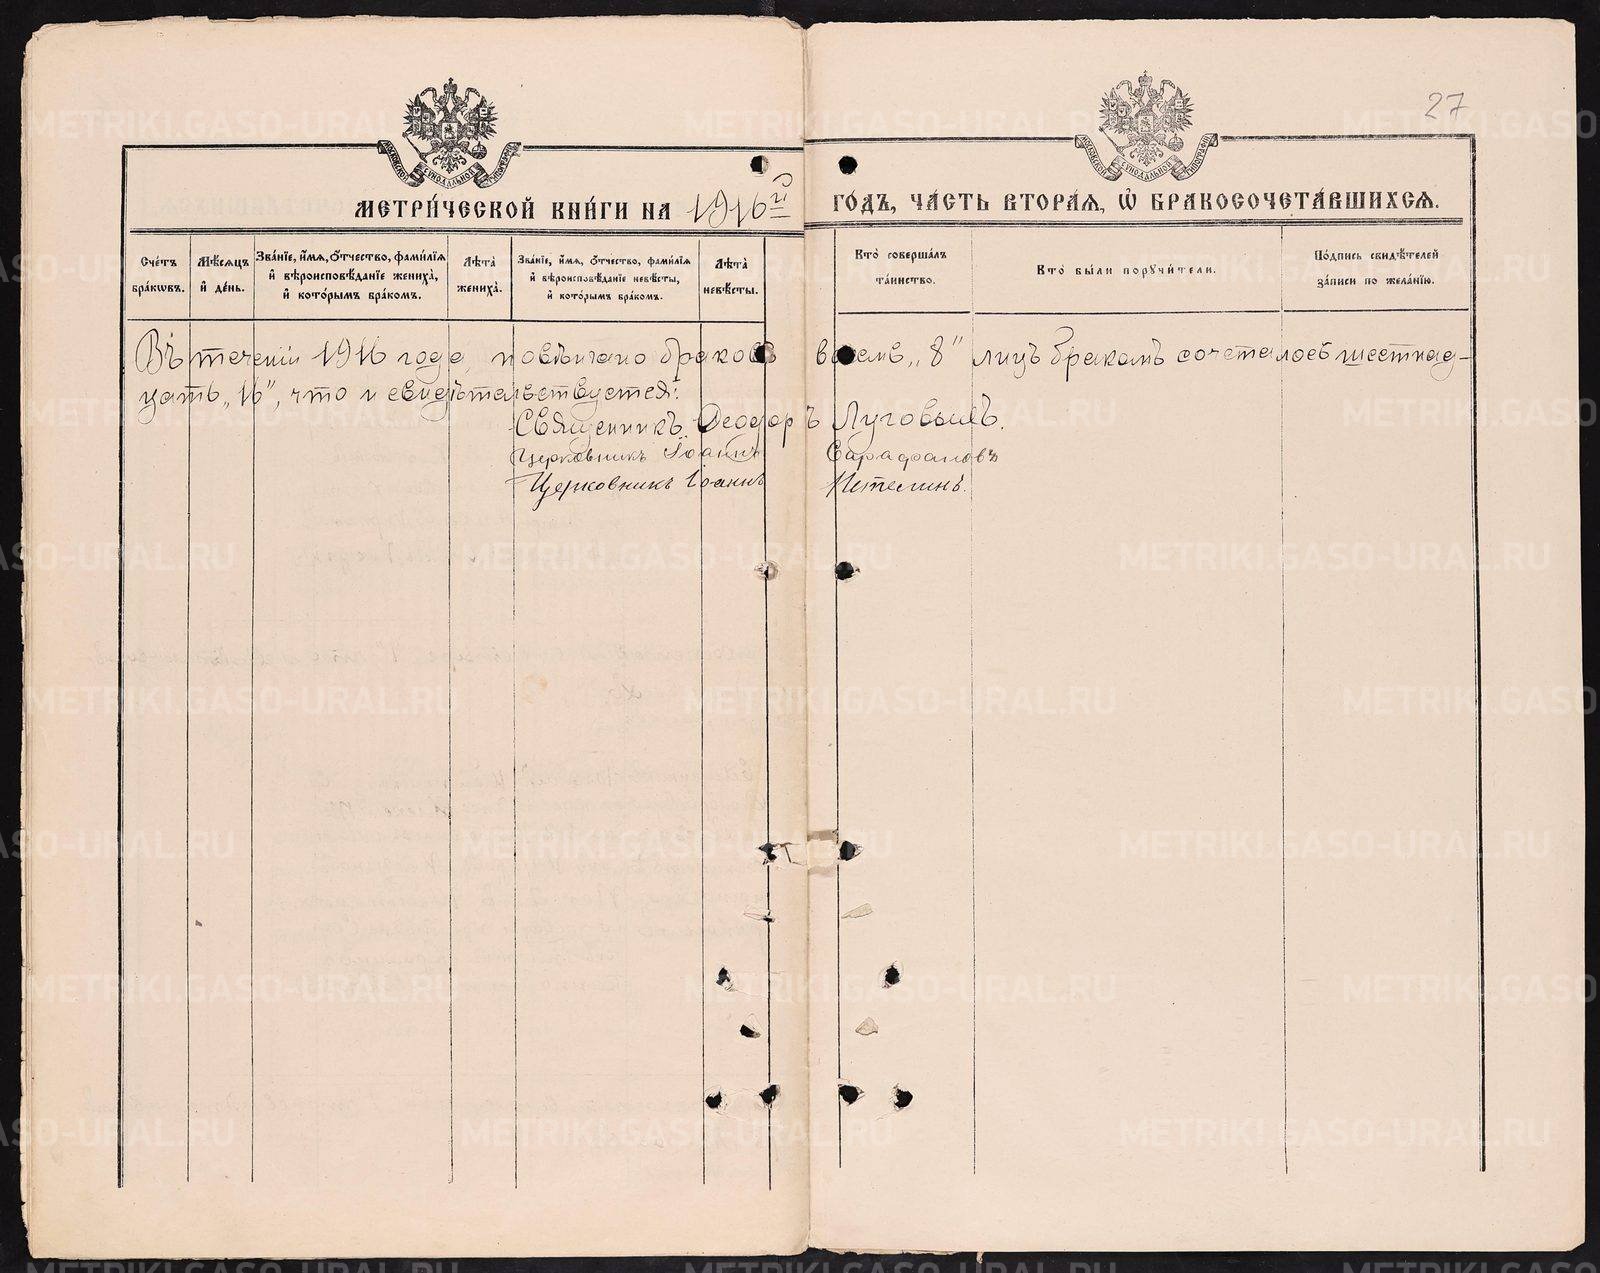 27
МОСКОВСКОЙ СѴНОДАЛЬНОЙ ТИПОГРАФІИ
МОСКОВСКОЙ СѴНОДАЛЬНОЙ ТИПОГРАФІИ
МЕТРИ́ЧЕСКОЙ КНИ́ГИ НА 1916й ГО́ДЪ, ЧА́СТЬ ВТОРА́Ѧ, Ѽ БРАКОСОЧЕТА́ВШИХСѦ.
Сче́тъ бра́кѡвъ.
Мѣ́сѧцъ и҆ де́нь.
Зва́нїе, и҆́мѧ, ѻ҆́тчество, фами́лїѧ и҆ вѣроисповѣ́данїе жениха̀, и҆ кото́рымъ бра́комъ.
Лѣ́та жениха̀.
Зва́нїе, и҆́мѧ, ѻ҆́тчество, фами́лїѧ и҆ вѣроисповѣ́данїе невѣ́сты, и҆ кото́рымъ бра́комъ.
Лѣ́та невѣ́сты.
Кто̀ соверша́лъ та́инство.
Кто̀ бы́ли порꙋчи́тели.
По́дпись свидѣ́телей за́писи по жела́нїю.
Въ теченіи 1916 года, повѣнчано браковъ восемь „8” лицъ бракомъ сочеталось шестнад-
цать „16”, что и свидѣтельствуется:
Священникъ Ѳеодоръ Луговыхъ.
Церковникъ Іоаннъ Сарафановъ
Церковникъ Іоаннъ Петелинъ.
METRIKI.GASO-URAL.RU